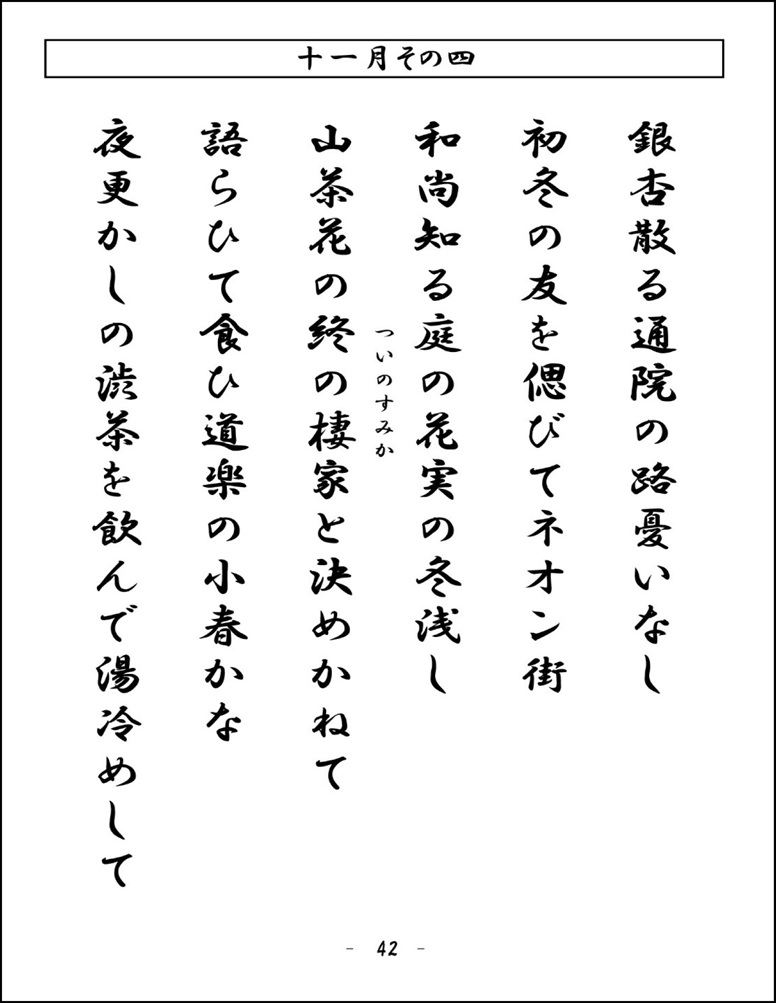 十一月その四
銀杏散る通院の路憂いなし
初冬の友を偲びてネオン街
和尚知る庭の花実の冬浅し
山茶花の終の棲家と決めかねて
ついのすみか
語らひて食ひ道楽の小春かな
夜更かしの渋茶を飲んで湯冷めして
- 42 -